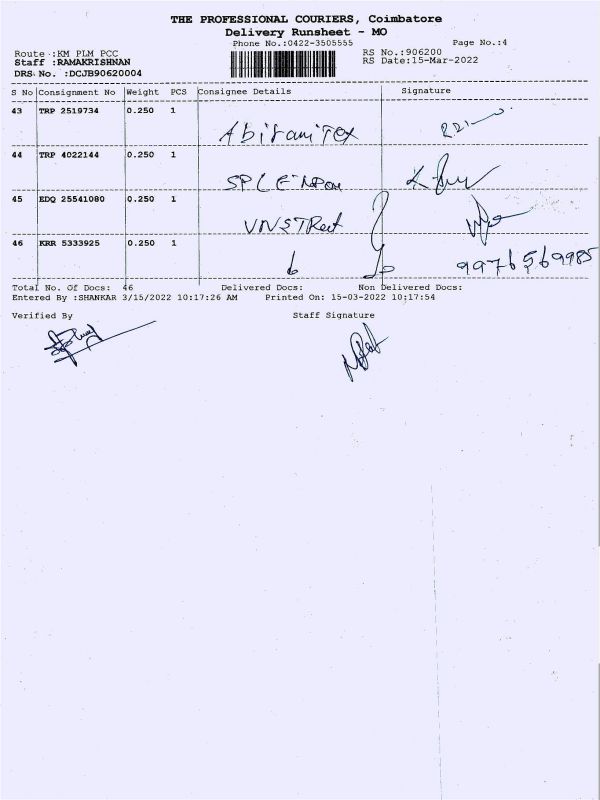 THE PROFESSIONAL COURIERS, Coimbatore
Delivery Runsheet - MO
Phone No.:0422-3505555 Page No.:4
Route :KM PLM PCC RS No.:906200
Staff :RAMAKRISHNAN RS Date:15-Mar-2022
DRS No. :DCJB90620004
S No Consignment No Weight PCS Consignee Details Signature
43 TRP 2519734 0.250 1
AbiramiTex
44 TRP 4022144 0.250 1
45 EDQ 25541080 0.250 1
46 KRR 5333925 0.250 1
9976569985
Total No. Of Docs: 46 Delivered Docs: Non Delivered Docs:
Entered By :SHANKAR 3/15/2022 10:17:26 AM Printed On: 15-03-2022 10:17:54
Verified By Staff Signature